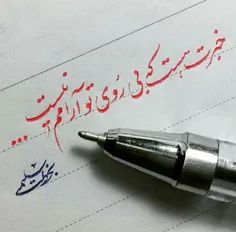 خبرت هست که بی روی تو آرامم نیست...